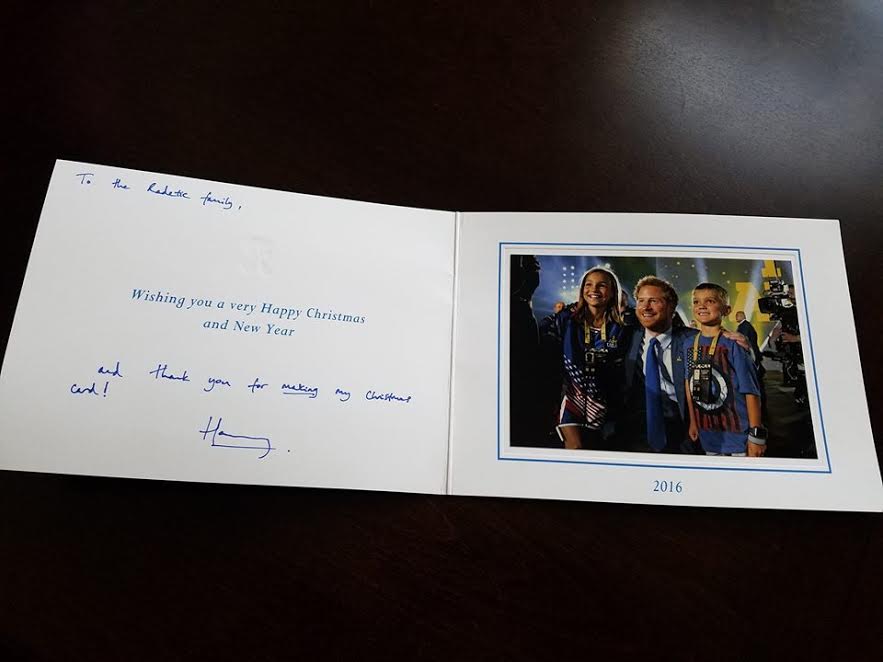 To the Radetic family,
Wishing you a very Happy Christmas
and New Year
and thank you for making my Christmas
card!
Harry.
2016